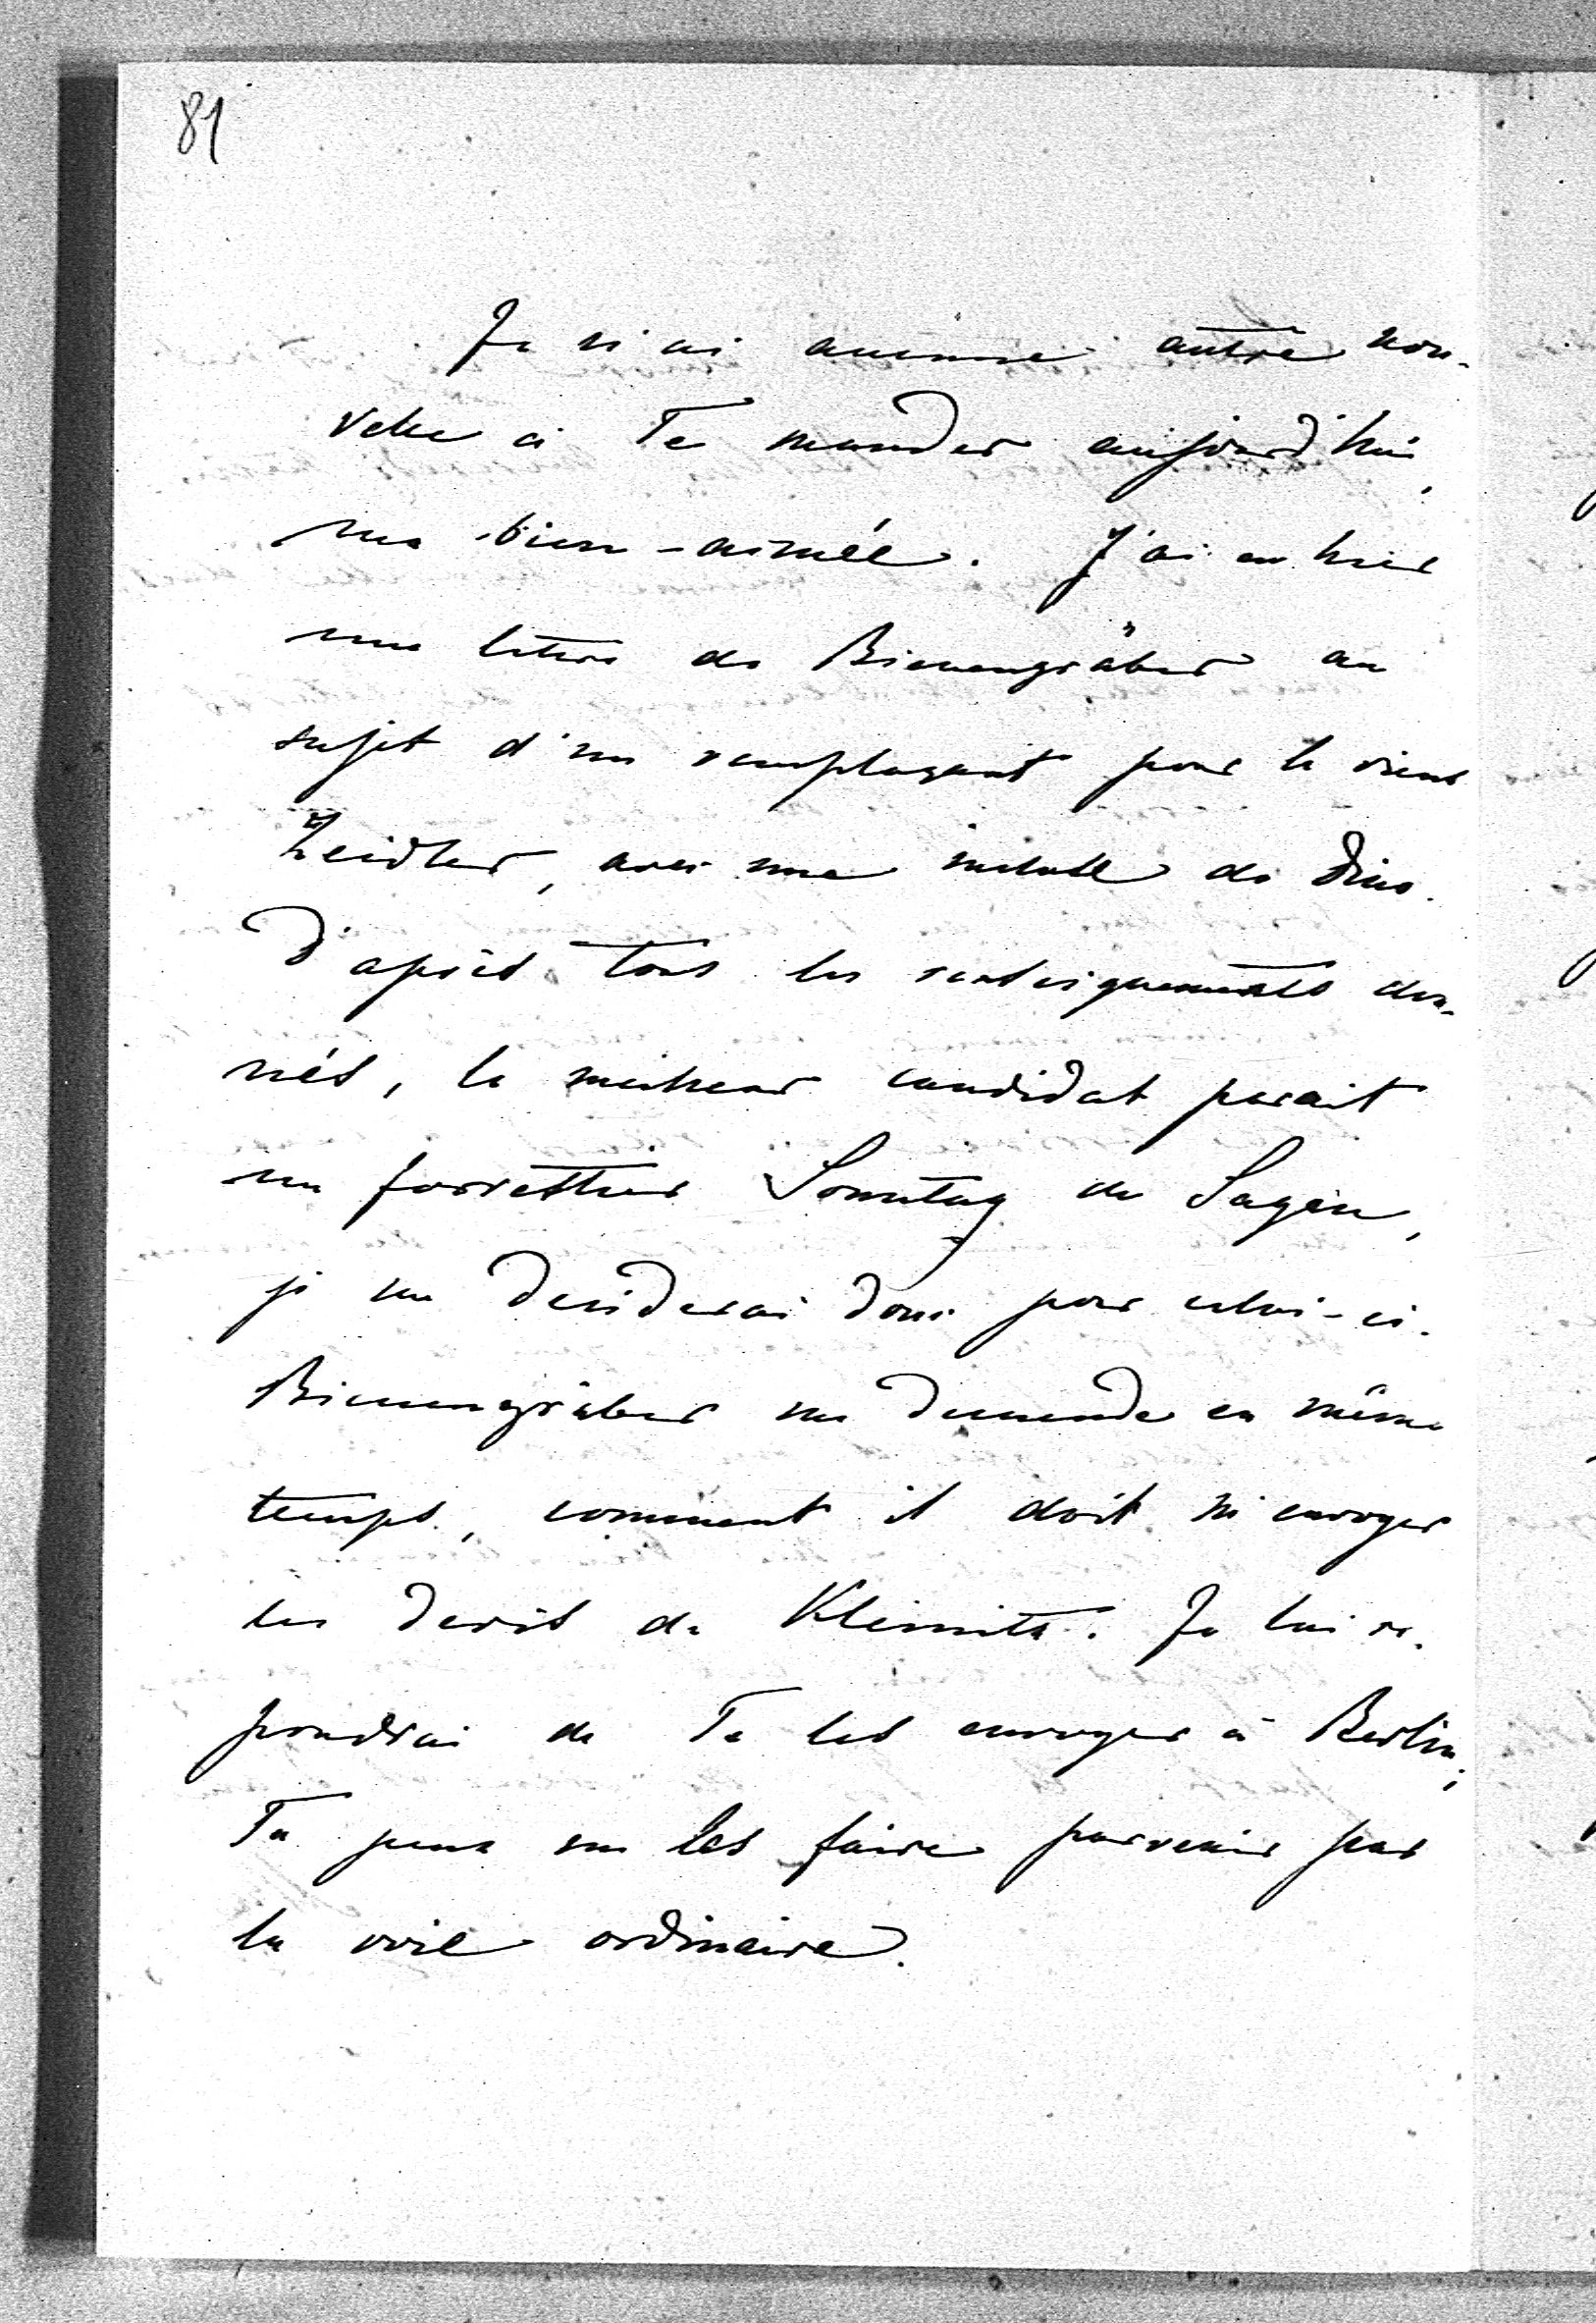 81
Je n'ai aucune autre nou-
velle à Te mander aujourd'hui,
ma bien-aimée. J'ai eu hier
une lettre de Bienengräber au
sujet d'un remplaçant pour le vieux
Zeidler, avec une incluse de Dino.
D'après tous les renseignements don-
nés, le meilleur candidat parait
un forrettier Sonntag de Sagen,
je me deciderai donc pour celui-ci.
Bienengräber me demande en même
temps, comment il doit m'envoyer
les devis de Klemitz. Je lui re-
pondrai de Te les envoyer à Berlin;
Tu peux me les faire parvenir par
la voie ordinaire.